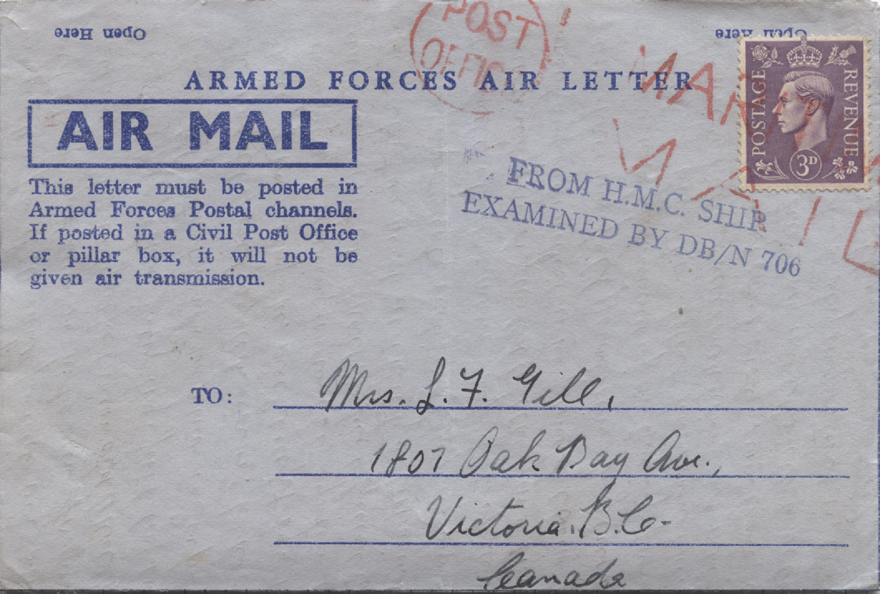 Open Here
Open Here
POST
OFFIC
ARMED FORCES AIR LETTER
MAR
MAIL
POSTAGE
REVENUE
3D
AIR MAIL
This letter must be posted in
Armed Forces Postal channels.
If posted in a Civil Post Office
or pillar box, it will not be
given air transmission.
FROM H.M.C. SHIP
EXAMINED BY DB/N 706
TO:
Mrs. L. F. Gill,
1807 Oak Bay Ave.,
Victoria. B.C.
Canada